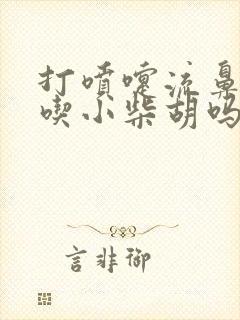 打噴嚏流鼻
喫小柴胡吗
言非御